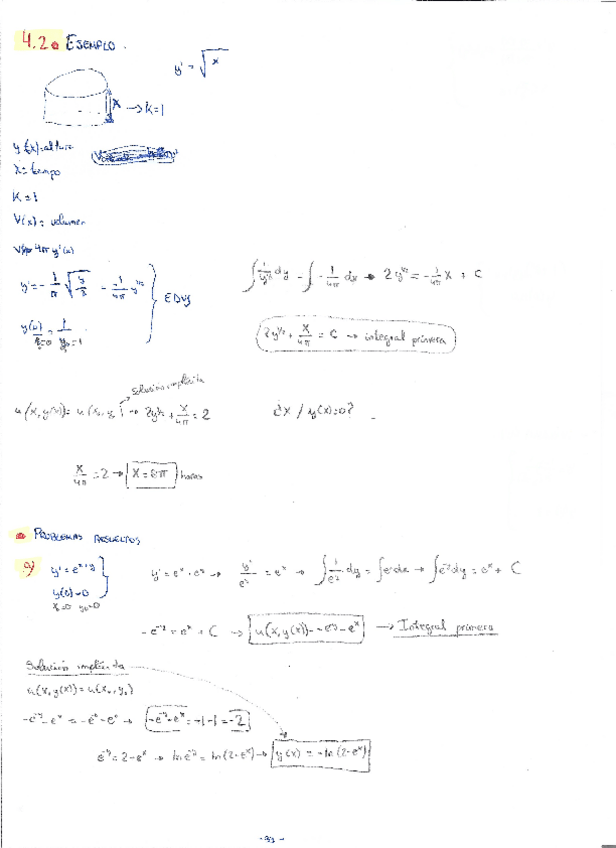 4.2 EJEMPLO.
y' = √x
x → k=1
y(x)=altura
x = tiempo
K=1
V(x) = volumen
4π y'(x)
y' = - 1/π √y/3 - 1/4π y^1/2
EDVS
y(0) = 1
x₀=0 y₀=1
∫ 1/y^1/2 dy = ∫ -1/4π dx → 2y^1/2 = -1/4π x + C
2y^1/2 + x/4π = C → integral primera
solución implícita
u(x,y(x)) = u(x₀,y₀) → 2y^1/2 + x/4π = 2
¿x / y(x)=0?
x/4π = 2 → x = 8π horas
PROBLEMAS RESUELTOS
y' = e^x+y
y(0)=0
x₀=0 y₀=0
y' = e^x · e^y → y'/e^y = e^x → ∫ 1/e^y dy = ∫ e^x dx → ∫ e^-y dy = e^x + C
-e^-y = e^x + C → u(x,y(x)) = -e^-y - e^x → Integral primera
Solución implícita
u(x,y(x)) = u(x₀,y₀)
-e^-y - e^x = -e^0 - e^0 → -e^-y - e^x = -1-1 = -2
e^-y = 2 - e^x → ln e^-y = ln(2-e^x) → y(x) = -ln(2-e^x)